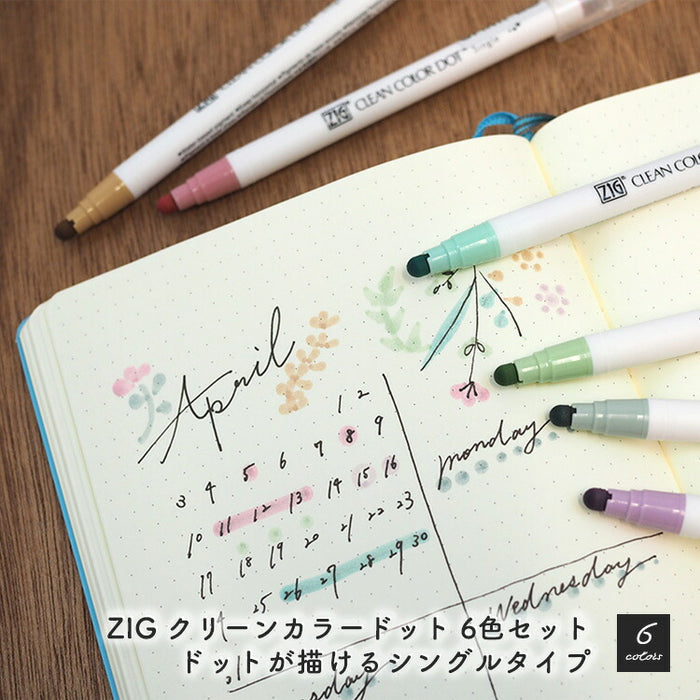 ZIG
ZIG CLEAN COLOR DOT Single
ZIG CLEAN COLOR
April
1 2
3 4 5 6 7 8 9
10 11 12 13 14 15 16
17 18 19 20 21 22 23
25 26 27 28 29 30
monday
Wednesday
ZIG クリーンカラードット 6色セット
ドットが描けるシングルタイプ
6
colors